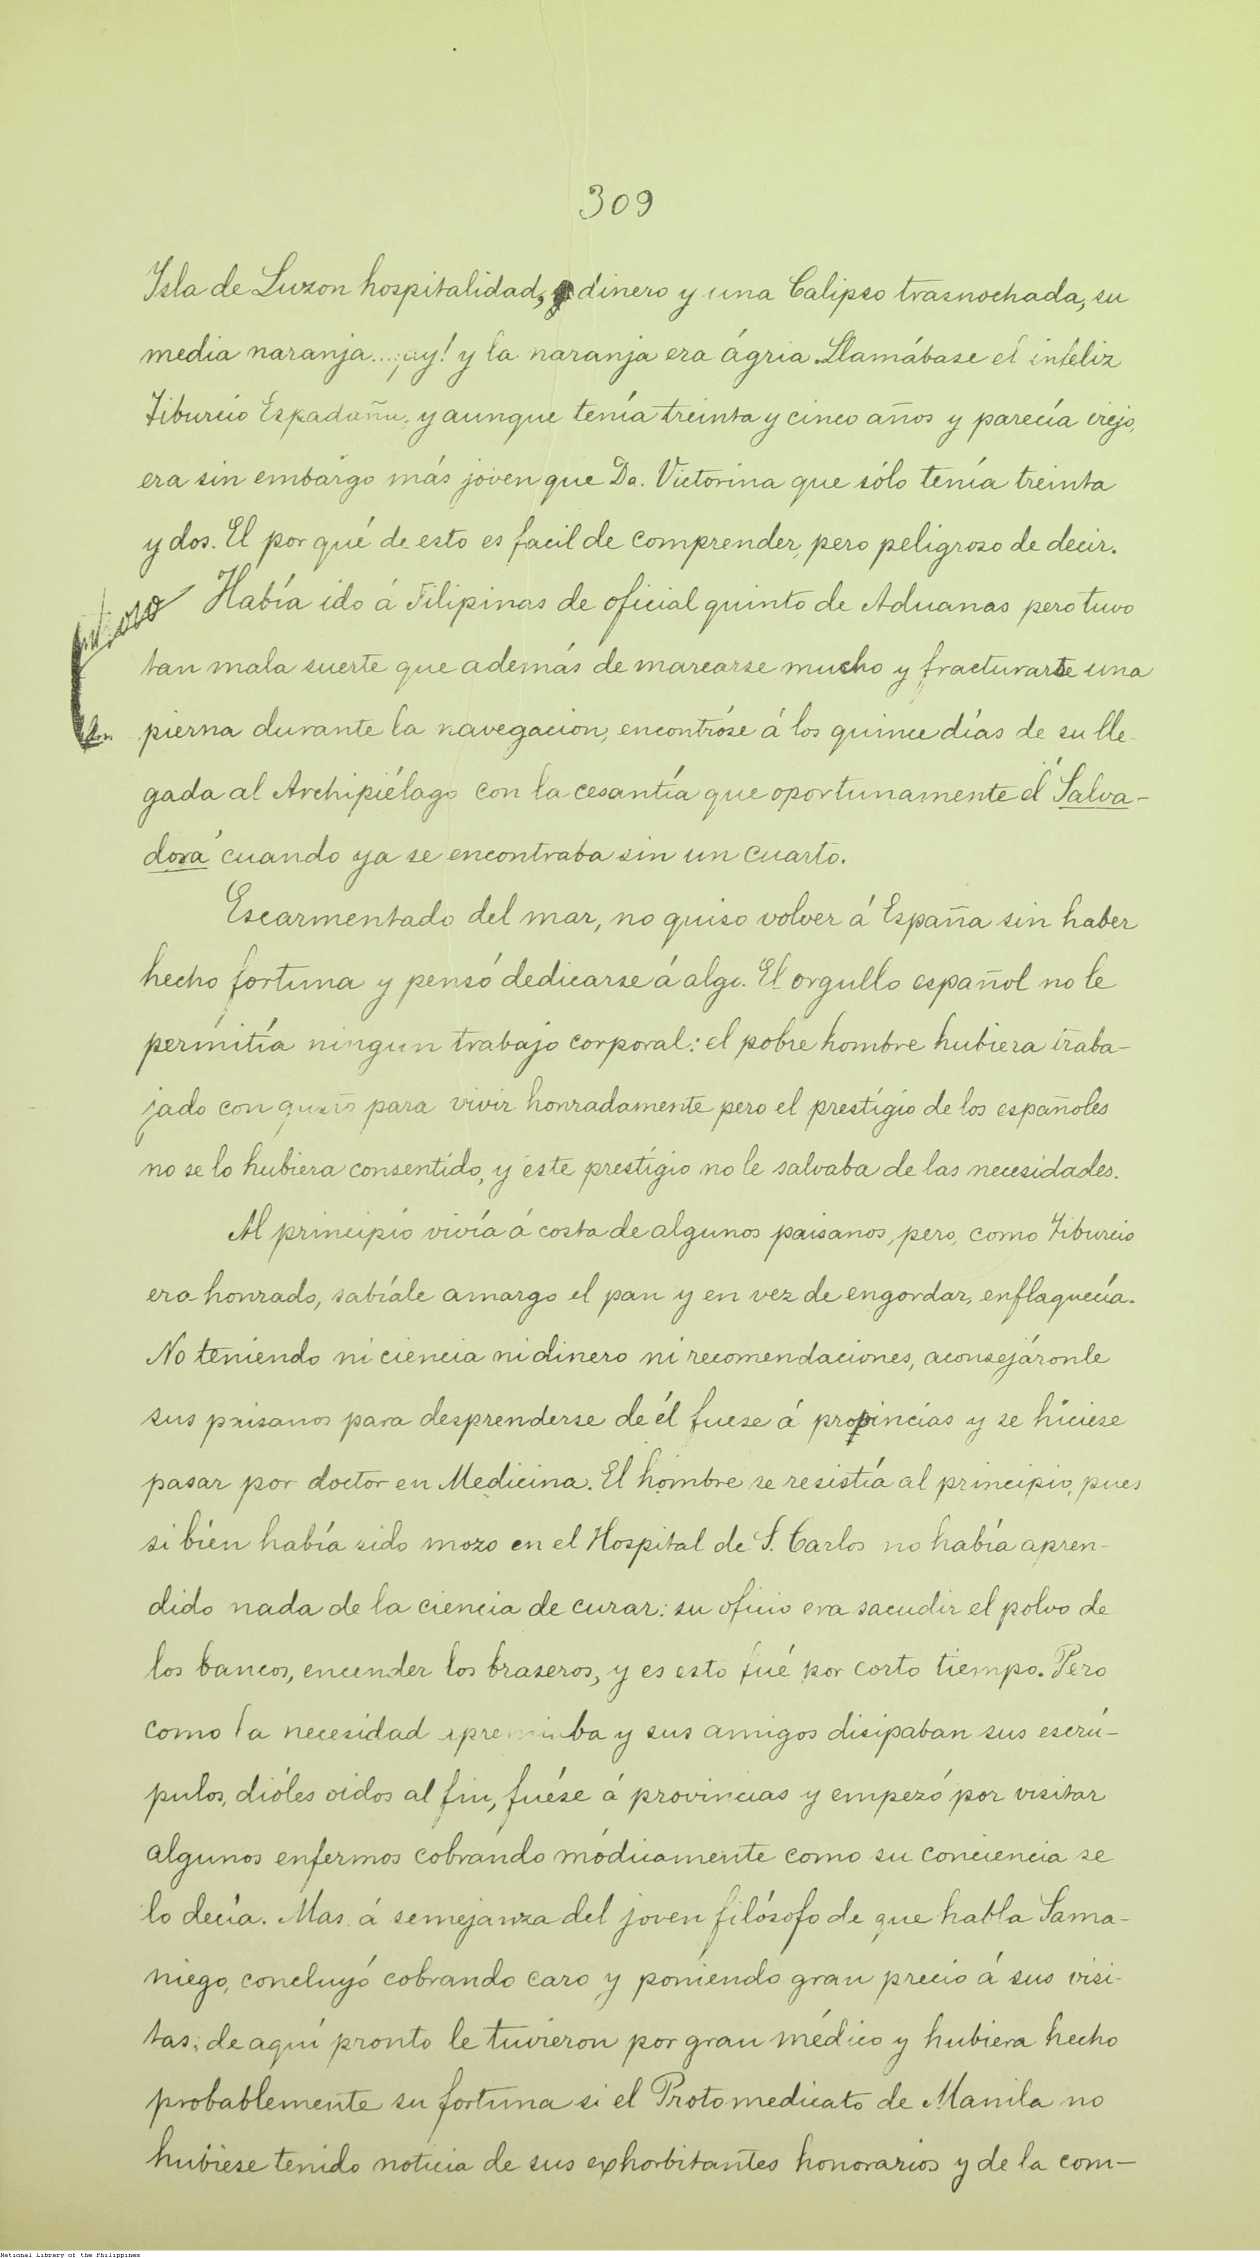 309
Isla de Luzon hospitalidad, dinero y una Calipso trasnochada, su
media naranja...¡ay! y la naranja era ágria. Llamábase el infeliz
Tiburcio Espadaña, y aunque tenía treinta y cinco años y parecía viejo,
era sin embargo más joven que Da. Victorina que sólo tenía treinta
y dos. El por qué de esto es facil de comprender, pero peligroso de decir.
Había ido á Filipinas de oficial quinto de Aduanas pero tuvo
tan mala suerte que además de marearse mucho y fracturarse una
pierna durante la navegacion, encontróse á los quince días de su lle-
gada al Archipiélago con la cesantía que oportunamente el "Salva-
dora" cuando ya se encontraba sin un cuarto.
Escarmentado del mar, no quiso volver á España sin haber
hecho fortuna y pensó dedicarse á algo. El orgullo español no le
permitía ningun trabajo corporal: el pobre hombre hubiera traba-
jado con gusto para vivir honradamente pero el prestigio de los españoles
no se lo hubiera consentido, y este prestigio no le salvaba de las necesidades.
Al principio vivía á costa de algunos paisanos, pero, como Tiburcio
era honrado, sabíale amargo el pan y en vez de engordar, enflaquecía.
No teniendo ni ciencia ni dinero ni recomendaciones, aconsejáronle
sus paisanos para desprenderse de él fuese á provincias y se hiciese
pasar por doctor en Medicina. El hombre se resistía al principio, pues
si bien había sido mozo en el Hospital de S. Carlos no había apren-
dido nada de la ciencia de curar: su oficio era sacudir el polvo de
los bancos, encender los braseros, y es esto fué por corto tiempo. Pero
como la necesidad apremiaba y sus amigos disipaban sus escrú-
pulos, dióles oidos al fin, fuése á provincias y empezó por visitar
algunos enfermos cobrando módicamente como su conciencia se
lo decía. Mas á semejanza del joven filósofo de que habla Sama-
niego, concluyó cobrando caro y poniendo gran precio á sus visi-
tas; de aquí pronto le tuvieron por gran médico y hubiera hecho
probablemente su fortuna si el Protomedicato de Manila no
hubiese tenido noticia de sus exhorbitantes honorarios y de la com-
National Library of the Philippines